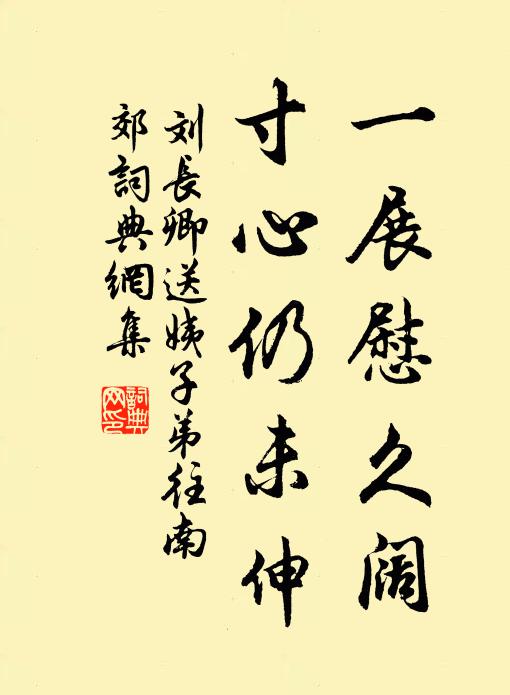 一展慰久阔
寸心仍未伸
刘長卿送姨子弟往南
郊詞典網集
詞典
网印